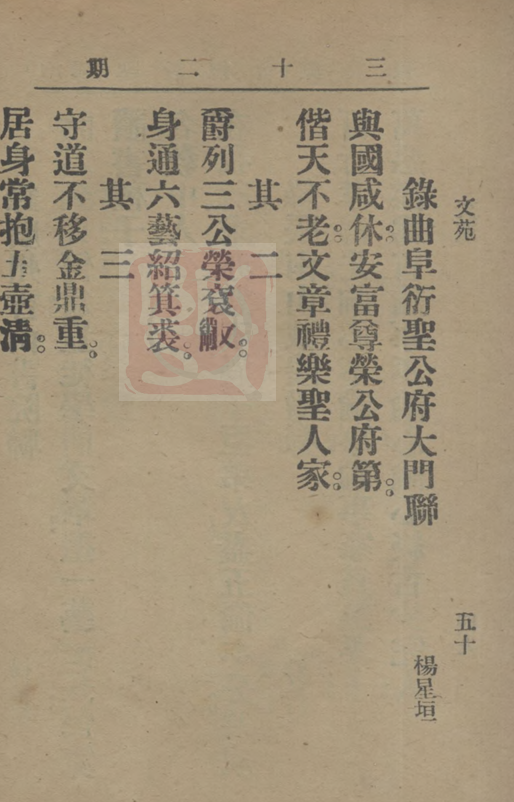 三十二期
文苑
五十
錄曲阜衍聖公府大門聯
楊星垣
與國咸休。安富尊榮公府第。
偕天不老。文章禮樂聖人家。
其二
爵列三公榮袞黻。
身通六藝紹箕裘。
其三
守道不移金鼎重。
居身常抱玉壺清。